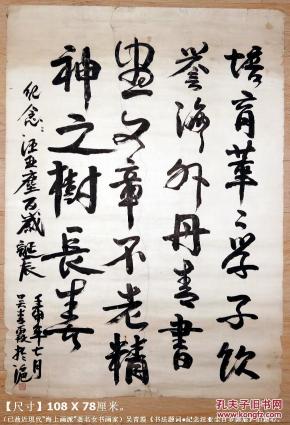 培育莘莘学子饮
誉海外丹青书
画文章不老精
神之树长春
纪念汪亚尘百岁诞辰
壬申年七月
吴青霞於沪
【尺寸】108 X 78厘米。
(已故近现代"海上画派"著名女书画家) 吴青霞《书法题词●纪念汪亚尘百岁诞辰